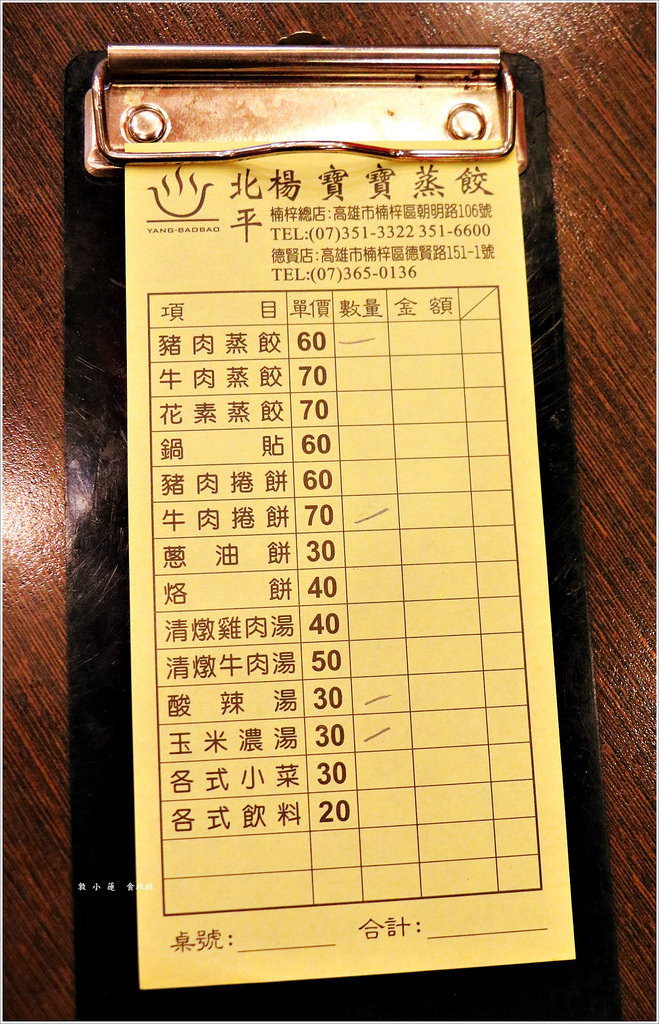 北平 楊寶寶蒸餃
YANG-BAOBAO
楠梓總店:高雄市楠梓區朝明路106號
TEL:(07)351-3322 351-6600
德賢店:高雄市楠梓區德賢路151-1號
TEL:(07)365-0136
項目 單價 數量 金額
豬肉蒸餃 60
牛肉蒸餃 70
花素蒸餃 70
鍋貼 60
豬肉捲餅 60
牛肉捲餅 70
蔥油餅 30
烙餅 40
清燉雞肉湯 40
清燉牛肉湯 50
酸辣湯 30
玉米濃湯 30
各式小菜 30
各式飲料 20
桌號: 合計:
敦小蓮